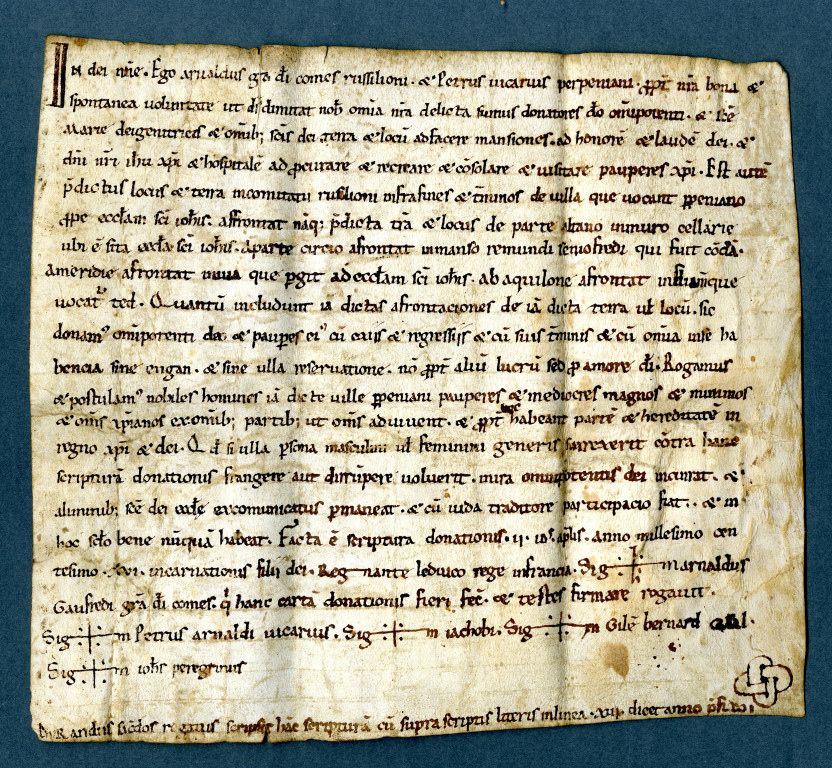 IN dei nñe. Ego arnaldus gr̃a dĩ comes russilioni. & Petrus uicarius perpeniani. ꝓpt̃ nr̃a bona &
spontanea uoluntate ut dĩ dimitat nob̃ om̃ia nr̃a delicta sumus donatores dõ om̃ipotenti. & sc̃e
Marie deigenitricis & om̃ib; sc̃is dei terra & locũ adfacere mansiones. ad honorẽ & laudẽ dei. &
dñi nr̃i ihũ xp̃i & hospitalẽ ad ꝓcurare & recreare & cõsolare & uisitare pauperes xp̃i. Est autẽ
p̃dictus locus & terra incomitatu russilioni infrafines & t̃minos de uilla que uocant ꝑpeniano
ꝓpe eccl̃am sc̃i ioh̃is. affrontat nãq; p̃dicta tr̃a & locus de parte altano inmuro cellarie
ubi ẽ sita eccl̃a sc̃i ioh̃is. aparte circio afrontat inmanso remundi seniofredi qui fuit cõdã.
Ameridie afrontat inuia que ꝑgit ad eccl̃am sc̃i ioh̃is. ab aquilone afrontat in que
uocat᷑ ted. Quantũ includunt iã dictas afrontaciones de iã dicta terra ul̃ locũ. sic
donamꝰ om̃ipotenti deo & paup̃es eiꝰ cũ exiis & regressiis & cũ suis t̃minis & cũ om̃ia inse ha
bencia sine engan. & sine ulla reseruatione. nõ ꝓpt̃ aliũ lucrũ sed ꝓ amore dĩ. Rogamus
& postulamꝰ nobiles homines iã dicte uille ꝑpeniani pauperes & mediocres magnos & minimos
& om̃s xp̃ianos exom̃ib; partib; ut om̃s adiuuent. & ꝓpt̃ hoc habeant partẽ & hereditatẽ in
regno xp̃i & dei. Qd̃ si ulla ꝑsona masculini ul̃ feminini generis surrexerit cõtra hanc
scripturã donationis frangere aut dirrũpere uoluerit. inira omnipotentis dei incurrat. &
aliminib; sc̃e dei eccl̃e excomunicatus ꝑmaneat. & cũ iuda traditore participacio fiat. & in
hoc sc̃lo bene nũquã habeat. Facta ẽ scriptura donationis. ii. idꝰ. ap̃lis. anno millesimo cen
tesimo. xvi. incarnationis filii dei. Regnante leduico rege infrancia. Sig+m arnaldus
Gaufredi gr̃a dĩ comes. q̃ hanc cartã donationis fieri fec̃. & testes firmare rogauit.
Sig+m Petrus arnaldi uicarius. Sig+m iachobi. Sig+m Gilẽ bernard
Sig+m ioh̃is peregrinus
Durandus sac̃dos rogatus scripsit hãc scripturã cũ supra scriptis literis inlinea. xii. die et anno p̃fixo.